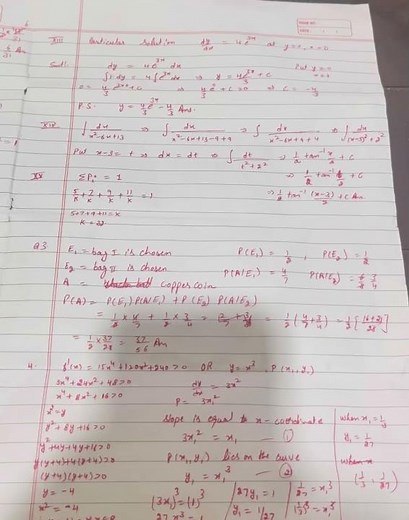 Particular solution dy/dx = 4e^3x at y=0, x=0
Sol: dy = 4e^3x dx Put y=0
∫1.dy = 4∫e^3x dx ⇒ y = 4e^3x/3 + C
P.S. y = 4/3 e^3x - 4/3 Ans.
∫ dx/(x²-6x+13) ⇒ ∫ dx/(x²-6x+13-9+9) ⇒ ∫ dx/(x²-6x+9+4) ⇒ ∫ dx/(x-3)²+2²
Put x-3=t ⇒ dx = dt ⇒ ∫ dt/(t²+2²) ⇒ 1/2 tan⁻¹ x/2 + C
⇒ 1/2 tan⁻¹ t/2 + C
ΣPi = 1 ⇒ 1/2 tan⁻¹ (x-3)/2 + C Ans
5/K + 7/K + 9/K + 11/K = 1
5+7+9+11 = K
K = 32
Q3 E₁ = bag I is chosen P(E₁) = 1/2, P(E₂) = 1/2
E₂ = bag II is chosen P(A/E₁) = 4/7 P(A/E₂) = 3/4
A = copper coin
P(A) = P(E₁) P(A/E₁) + P(E₂) P(A/E₂)
= 1/2 × 4/7 + 1/2 × 3/4 = 1/2 (4/7 + 3/4) = 1/2 [(16+21)/28]
= 1/2 × 37/28 = 37/56 Ans
4. f'(x) = 15x⁴+120x²+240 > 0 OR y = x³, P(x₁,y₁)
3x⁴+24x²+48 > 0 dy/dx = 3x²
x⁴+8x²+16 > 0 P = 3x²
x² = y slope is equal to x-coordinate when x₁ = 1/3
y²+8y+16 > 0 3x₁² = x₁ — ① y₁ = 1/27
y²+4y+4y+16 > 0 P(x₁,y₁) lies on the curve
y(y+4)+4(y+4) > 0 y₁ = x₁³ — ② (1/3, 1/27)
(y+4)(y+4) > 0
y = -4 (3x₁)³ = (1)³ 27y₁ = 1 1/27 = x₁³
x² = -4 27x³ = 1 y₁ = 1/27